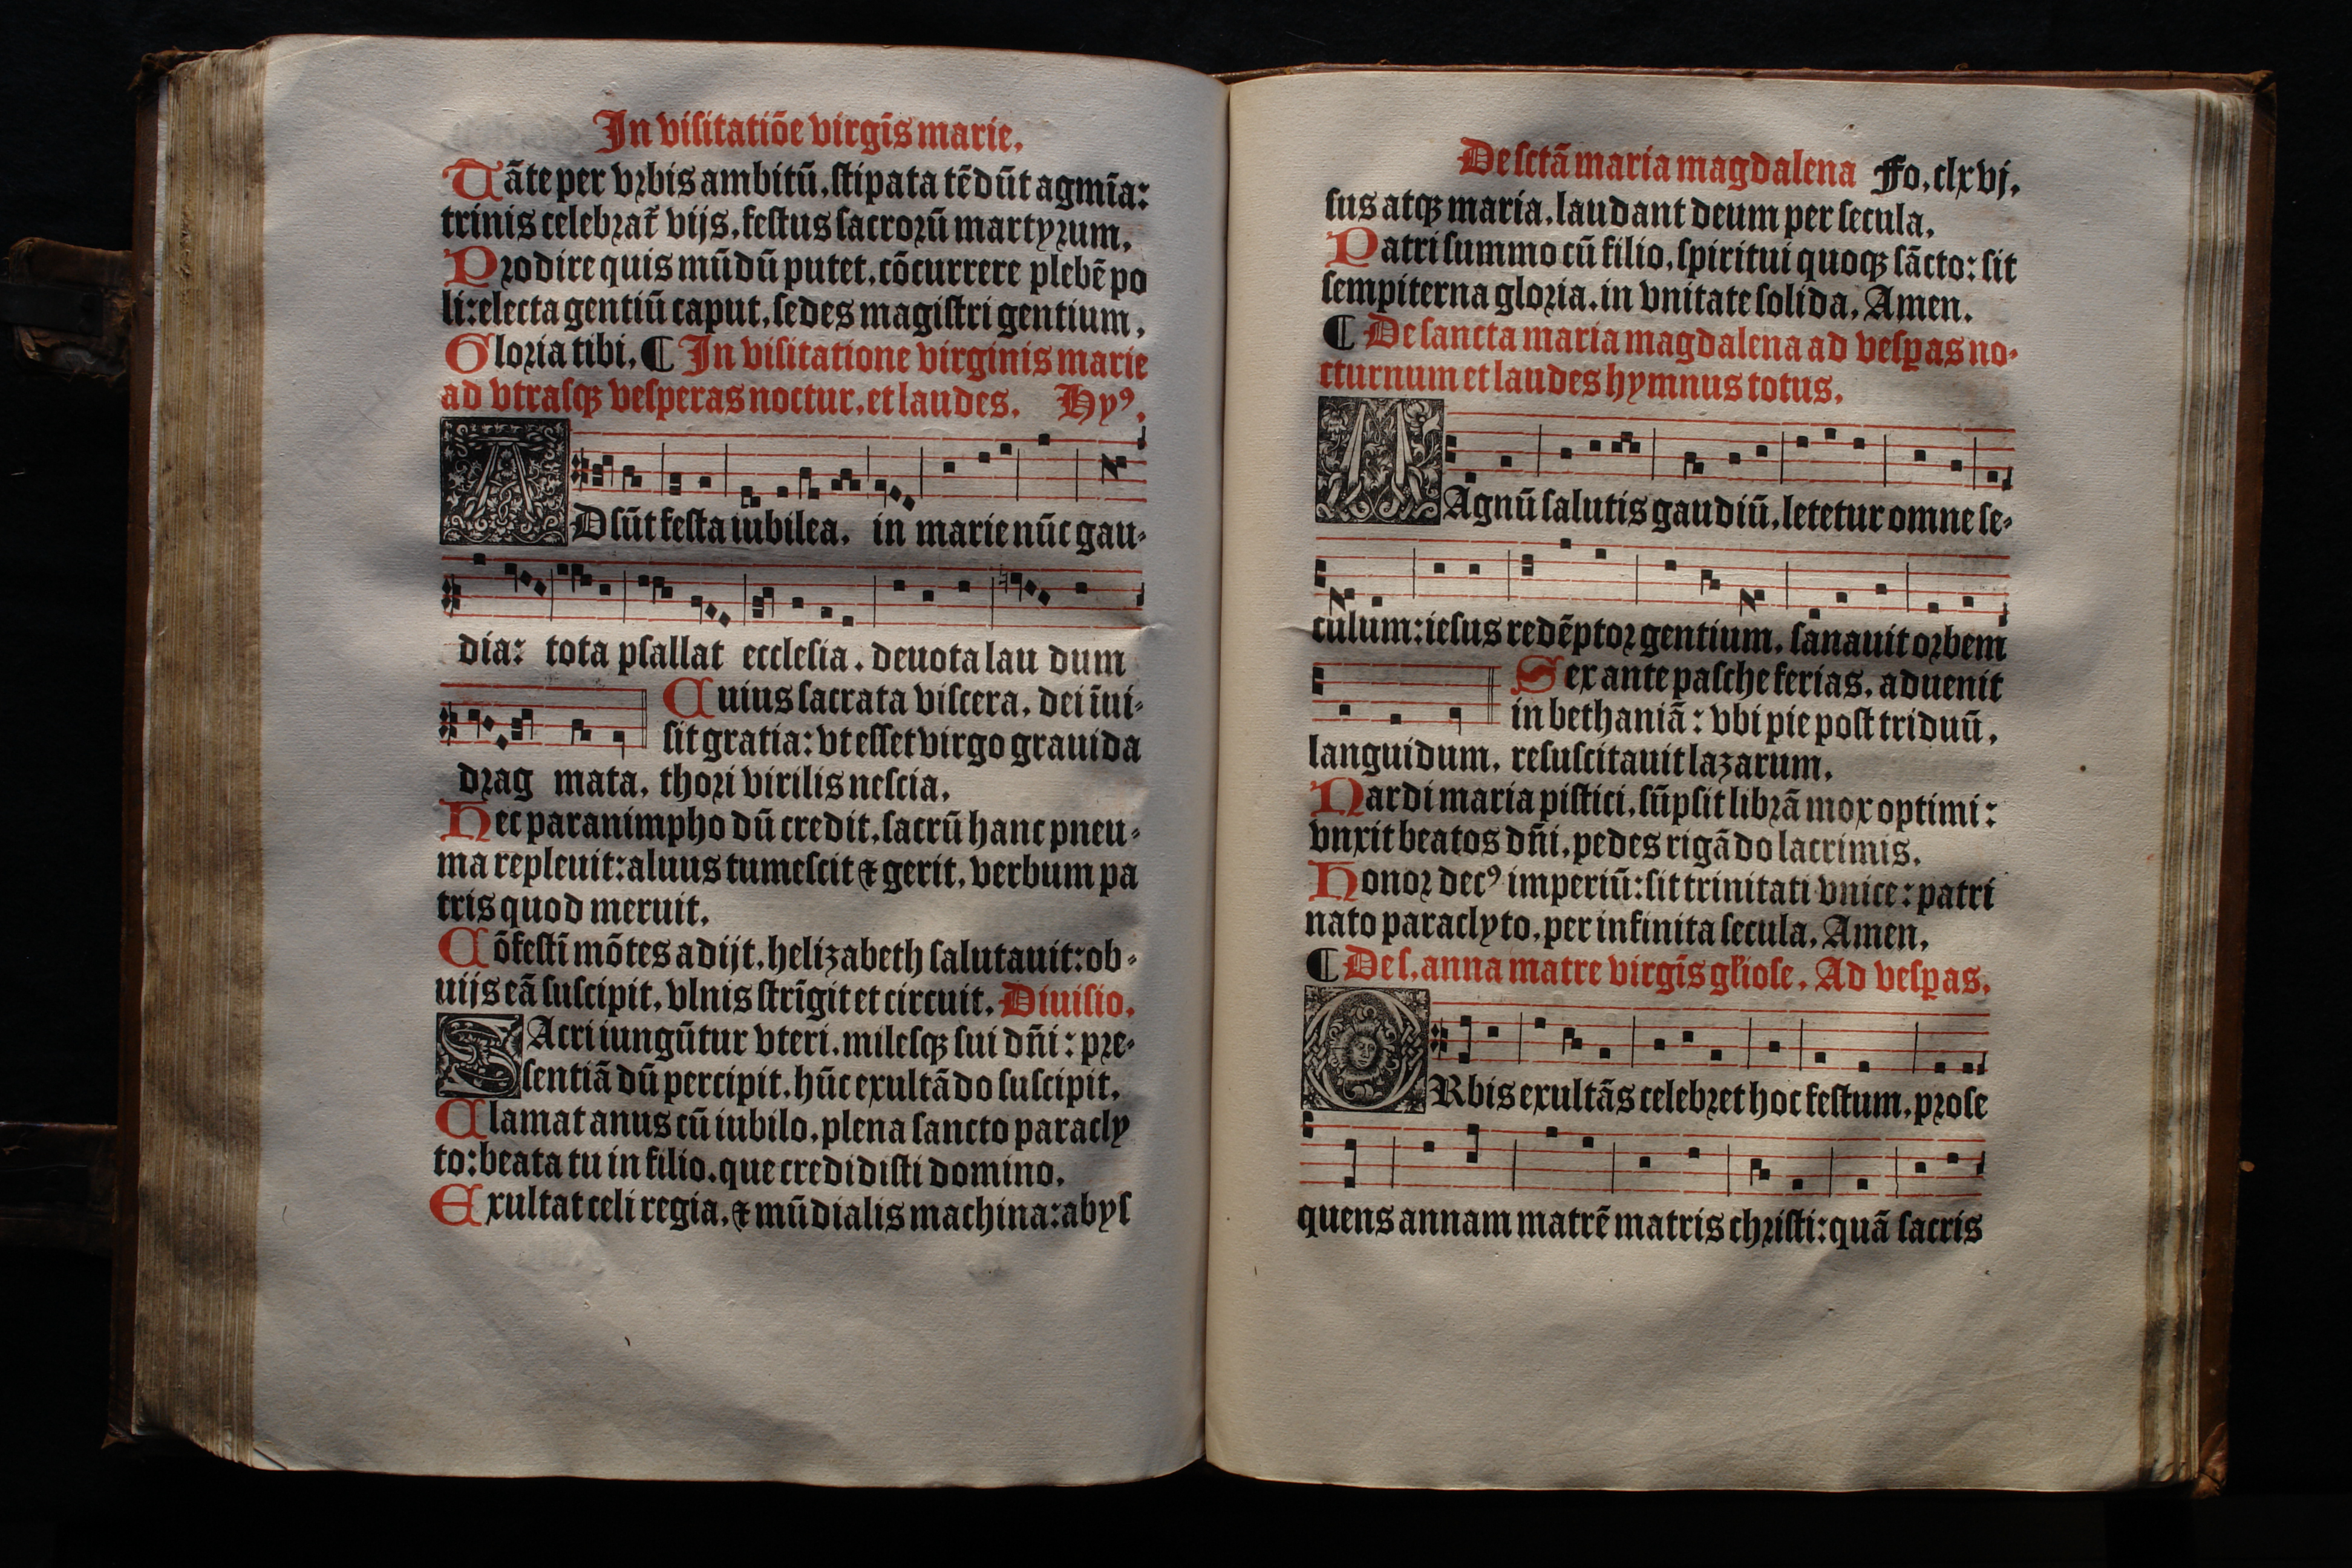 In viſitatiōe virgīs marie.
Tāte per vꝛbis ambitū, ſtipata tēdūt agmīa:
trinis celebꝛat᷑ vijs, feſtus ſacroꝛū martyꝛum.
Pꝛodire quis mūdū putet, cōcurrere plebē po
li: electa gentiū caput, ſedes magiſtri gentium.
Gloꝛia tibi. ¶ In viſitatione virginis marie
ad vtraſqꝫ veſperas noctur. et laudes. Hyꝰ.
ADſūt feſta iubilea. in marie nūc gau⸗
dia: tota pſallat eccleſia. deuota lau dum
Cuius ſacrata viſcera, dei īui⸗
ſit gratia: vt eſſet virgo grauida
dꝛag mata, thoꝛi virilis neſcia.
Hec paranimpho dū credit, ſacrū hanc pneu⸗
ma repleuit: aluus tumeſcit ⁊ gerit, verbum pa
tris quod meruit.
Cōfeſtī mōtes adijt, helizabeth ſalutauit: ob⸗
uijs eā ſuſcipit, vlnis ſtrīgit et circuit. Diuiſio.
SAcri iungūtur vteri, mileſqꝫ ſui dn̄i: pꝛe⸗
ſentiā dū percipit, hūc exultādo ſuſcipit.
Clamat anus cū iubilo, plena ſancto paracly
to: beata tu in filio, que credidiſti domino.
Exultat celi regia, ⁊ mūdialis machina: abyſ
De ſctā maria magdalena Fo. clxvj.
ſus atqꝫ maria, laudant deum per ſecula.
Patri ſummo cū filio, ſpiritui quoqꝫ ſācto: ſit
ſempiterna gloꝛia, in vnitate ſolida. Amen.
¶ De ſancta maria magdalena ad veſꝑas no⸗
cturnum et laudes hymnus totus.
MAgnū ſalutis gaudiū, letetur omne ſe⸗
culum: ieſus redēptoꝛ gentium, ſanauit oꝛbem
Sex ante paſche ferias, aduenit
in bethaniā: vbi pie poſt triduū,
languidum, reſuſcitauit lazarum.
Nardi maria piſtici, ſūpſit librā mox optimi:
vnxit beatos dn̄i, pedes rigādo lacrimis.
Honoꝛ decꝰ imperiū: ſit trinitati vnice: patri
nato paraclyto, per infinita ſecula. Amen.
¶ De ſ. anna matre virgīs gl̄ioſe. Ad veſꝑas.
ORbis exultās celebꝛet hoc feſtum, pꝛoſe
quens annam matrē matris chꝛiſti: quā ſacris